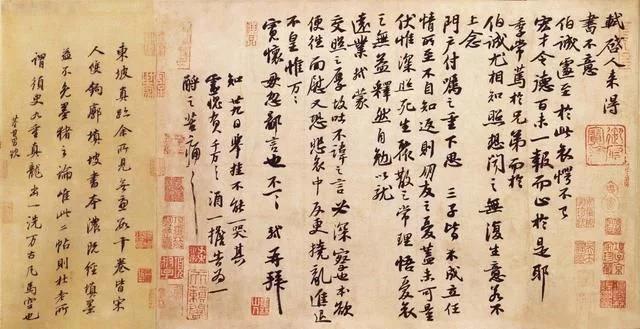 軾啓人來得
書不意
伯誠遽至於此哀愕不已
宏才令德百未一報而止於是耶
季常篤於兄弟而於
伯誠尤相知照想聞之無復生意若不
上念
門戶付囑之重下思三子皆不成立任
情所至不自知返則朋友之憂蓋未可量
伏惟深照死生聚散之常理悟憂哀
之無益釋然自勉以就
遠業軾蒙
交照之厚故吐不諱之言必深察也本欲
便往面慰又恐悲哀中反更撓亂進退
不皇惟萬萬
寬懷毋忽鄙言也不一一軾再拜
知廿九日舉掛不能一哭其
靈愧負千萬千萬酒一擔告為一
酹之苦痛苦痛
東坡真跡余所見無慮數十卷皆宋
人雙鉤廓填坡書本濃既經填墨
益不免墨豬之論惟此二帖則杜老所
謂須臾九重真龍出一洗萬古凡馬空也
董其昌題